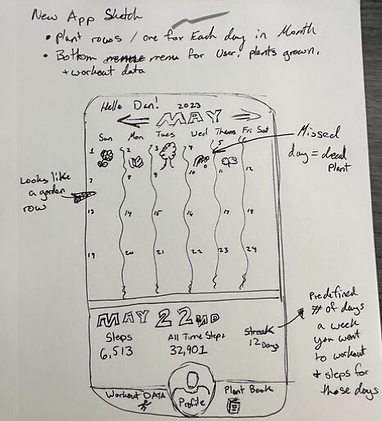 New App Sketch
• Plant rows / one for Each day in Month
• Bottom menu for User, plants grown,
+ workout data
Hello Dan! 2023
MAY
Sun Mon Tues Wed Thurs Fri Sat
1 2 3 4 5 6
7 9 10 11 12
13 14 15 16 17 18
19 20 21 22 23 24
Missed
day = dead
plant
Looks like
a garden
row
MAY 22ND
Steps All Time Steps Streak
6,513 32,901 12 Days
Predefined
# of days
a week
you want
to workout
+ steps for
those days
Workout DATA Profile Plant Book